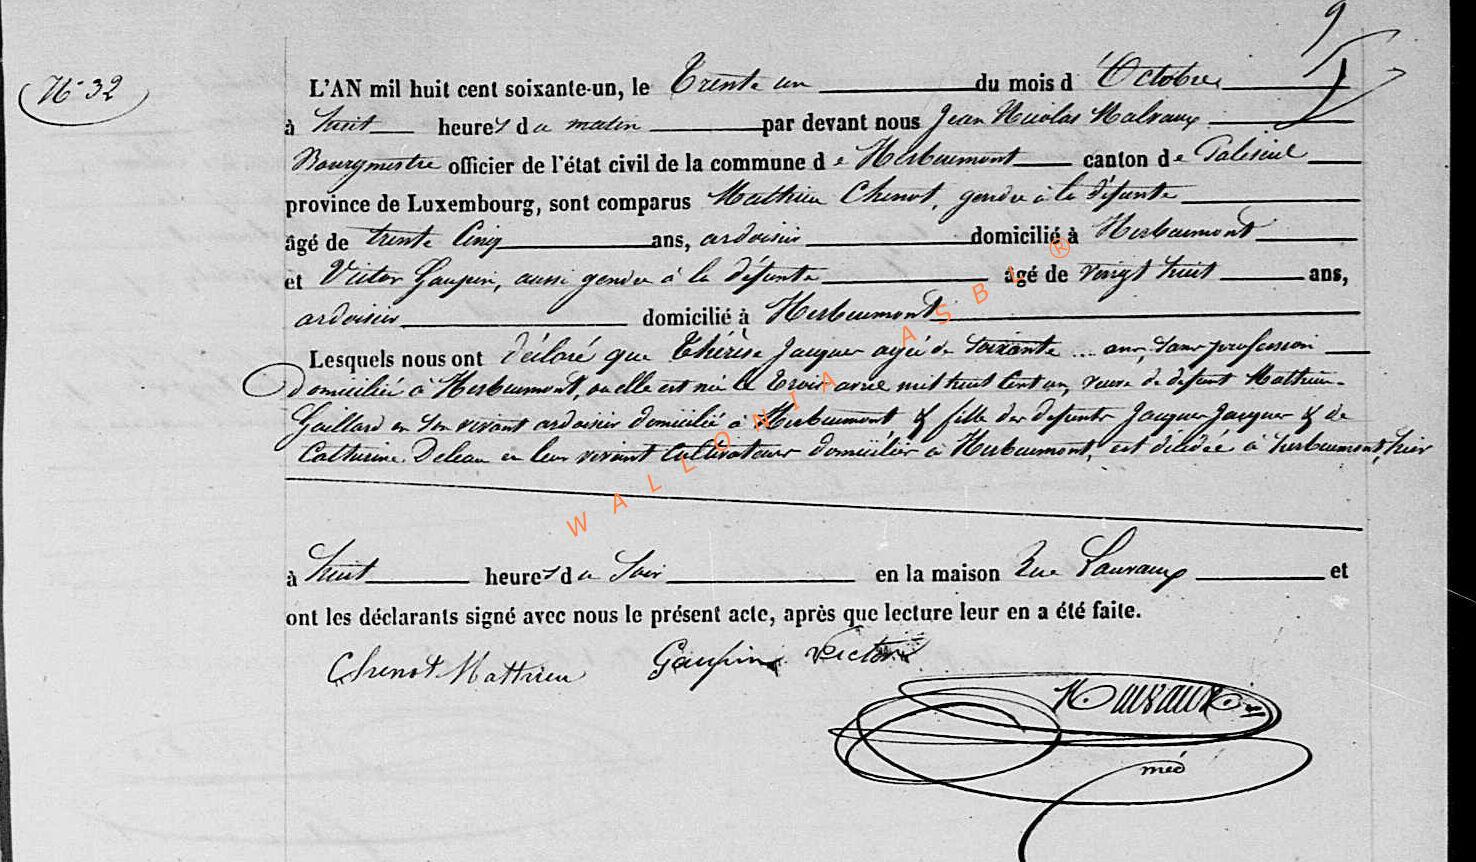 9
N° 32
L'AN mil huit cent soixante-un, le Trente un du mois d'Octobre
à huit heures du matin par devant nous Jean Nicolas Malvaux
Bourgmestre officier de l'état civil de la commune de Herbeumont canton de Paliseul
province de Luxembourg, sont comparus Mathieu Chenot, gendre à la défunte
âgé de trente cinq ans, ardoisier domicilié à Herbeumont
et Victor Gaupin, aussi gendre à la défunte âgé de vingt huit ans,
ardoisier domicilié à Herbeumont
Lesquels nous ont déclaré que Thérèse Jacques agée de soixante ans, sans profession
domiciliée à Herbeumont, où elle est née le trois avril mil huit cent un, veuve de défunt Mathieu
Gaillard en son vivant ardoisier domicilié à Herbeumont & fille des défunts Jacques Jacques & de
Catherine Deleau en leur vivant cultivateurs domiciliés à Herbeumont, est décédée à herbeumont, hier
à huit heures du soir en la maison Rue Lauvaux et
ont les déclarants signé avec nous le présent acte, après que lecture leur en a été faite.
Chenot Mathieu Gaupin Victor
WALLONIA ASBL ®